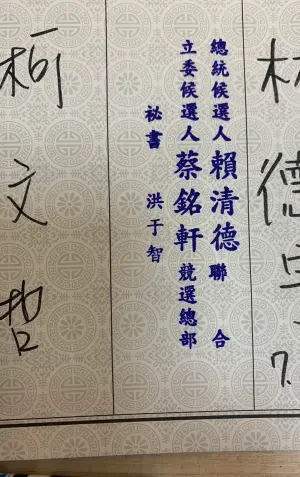 林德
7.
總統候選人 賴清德 聯合
立委候選人 蔡銘軒 競選總部
祕書 洪于智
柯文哲